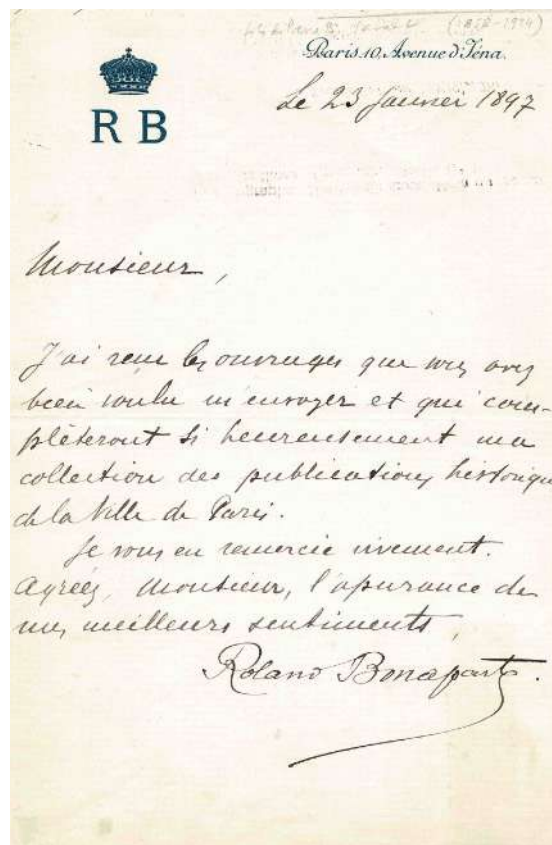 (1858-1924)
Paris 10, Avenue d'Iéna.
R B
Le 23 Janvier 1897
Monsieur,
J'ai reçu les ouvrages que vous avez
bien voulu m'envoyer et qui com-
plèteront si heureusement ma
collection des publications historique
de la Ville de Paris.
Je vous en remercie vivement.
Agréez, Monsieur, l'assurance de
mes meilleurs sentiments,
Roland Bonaparte.